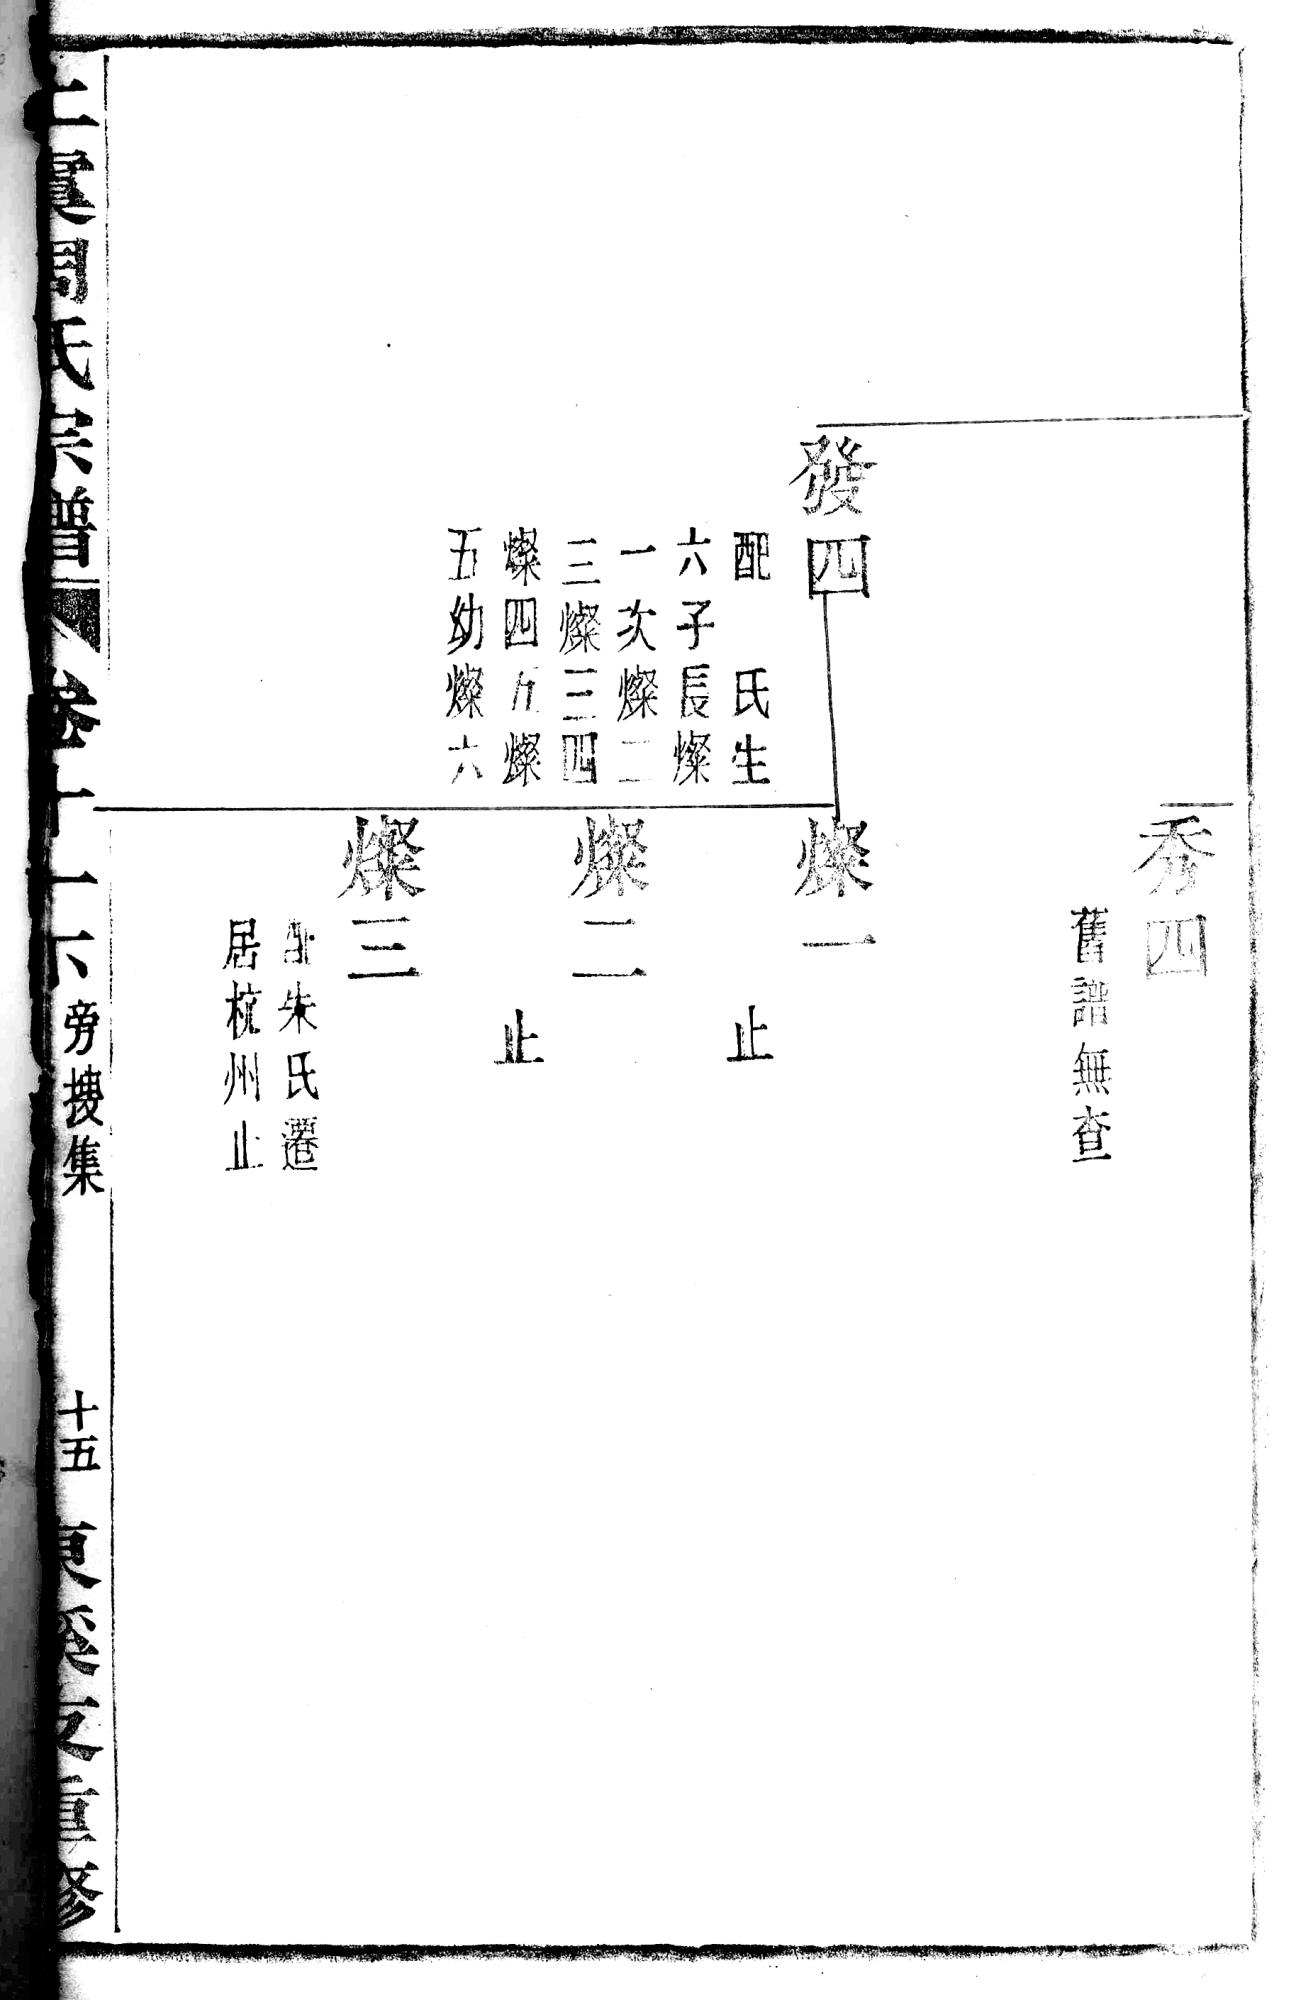 秀四
舊譜無查
發四
配　氏生
六子長燦
一次燦二
三燦三四
燦四五燦
五幼燦六
燦一
止
燦二
止
燦三
配朱氏遷
居杭州止
上虞周氏宗譜
卷十一下
旁搜集
十五
東溪友重修